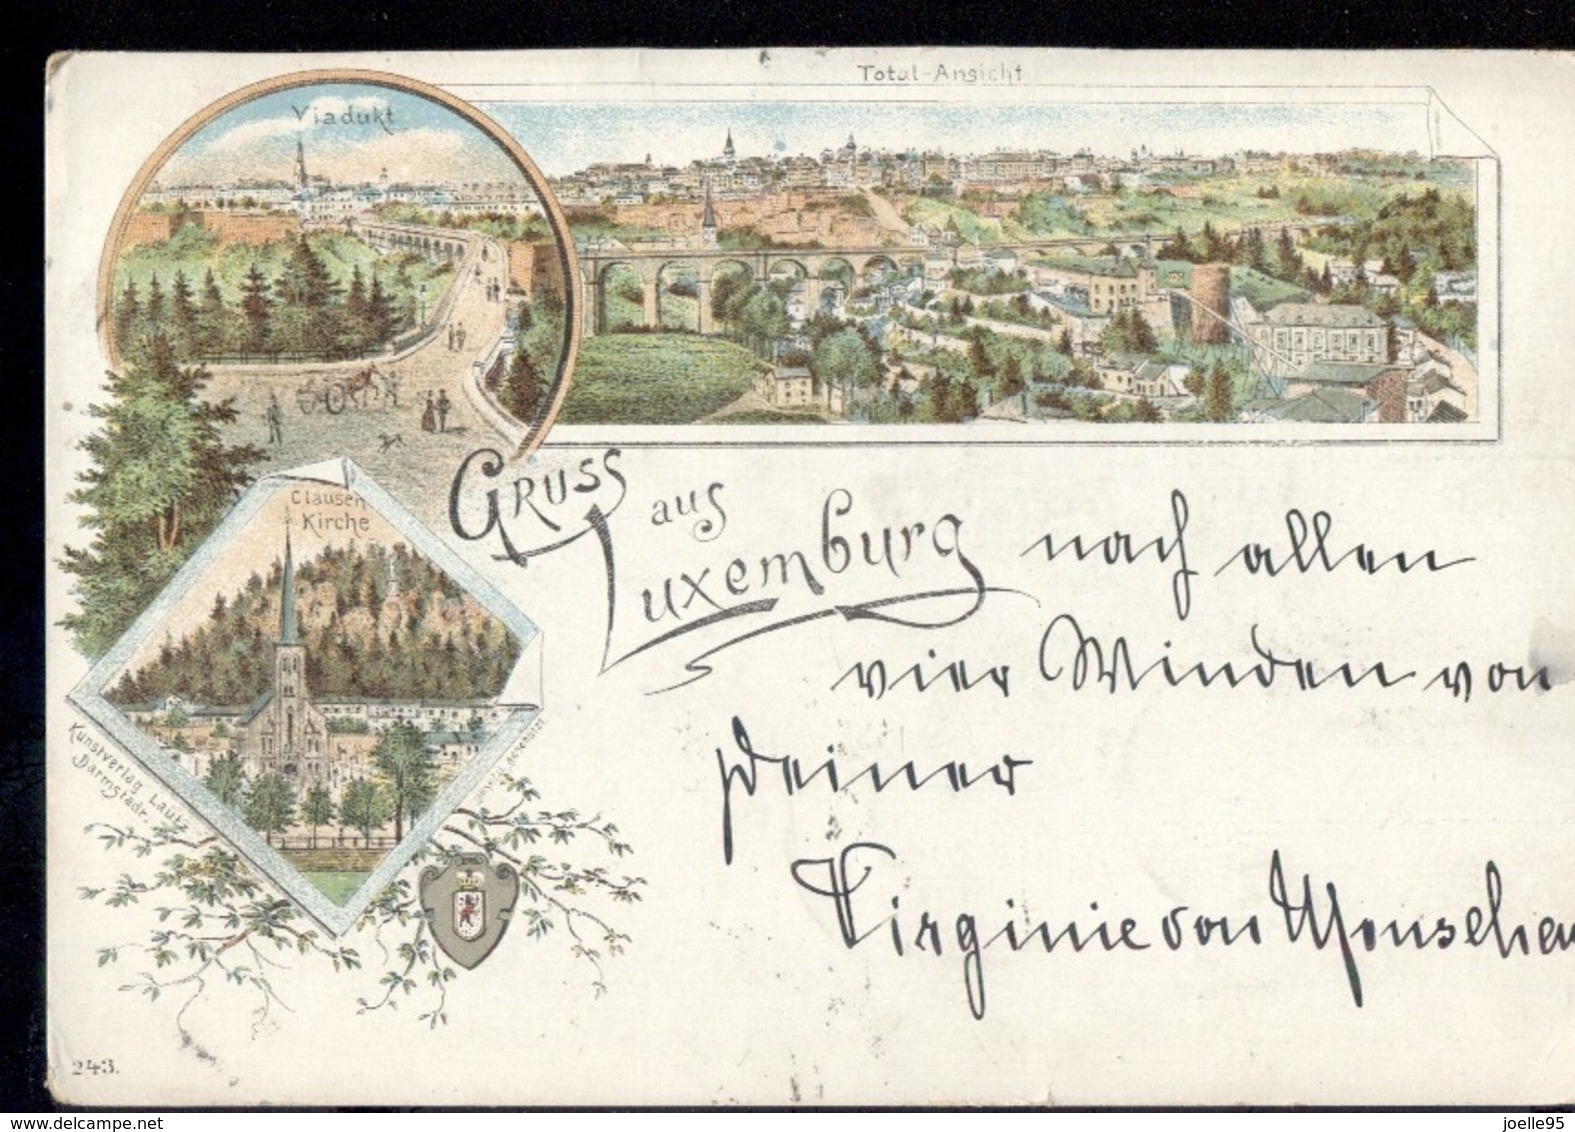 Total-Ansicht
Viadukt
Gruss aus
Luxemburg
nach allen
vier Winden von
Deiner
Virginie von
Clausen
Kirche
Kunstverlag Lautz
Darmstadt.
243.
delcampe.net
joelle95